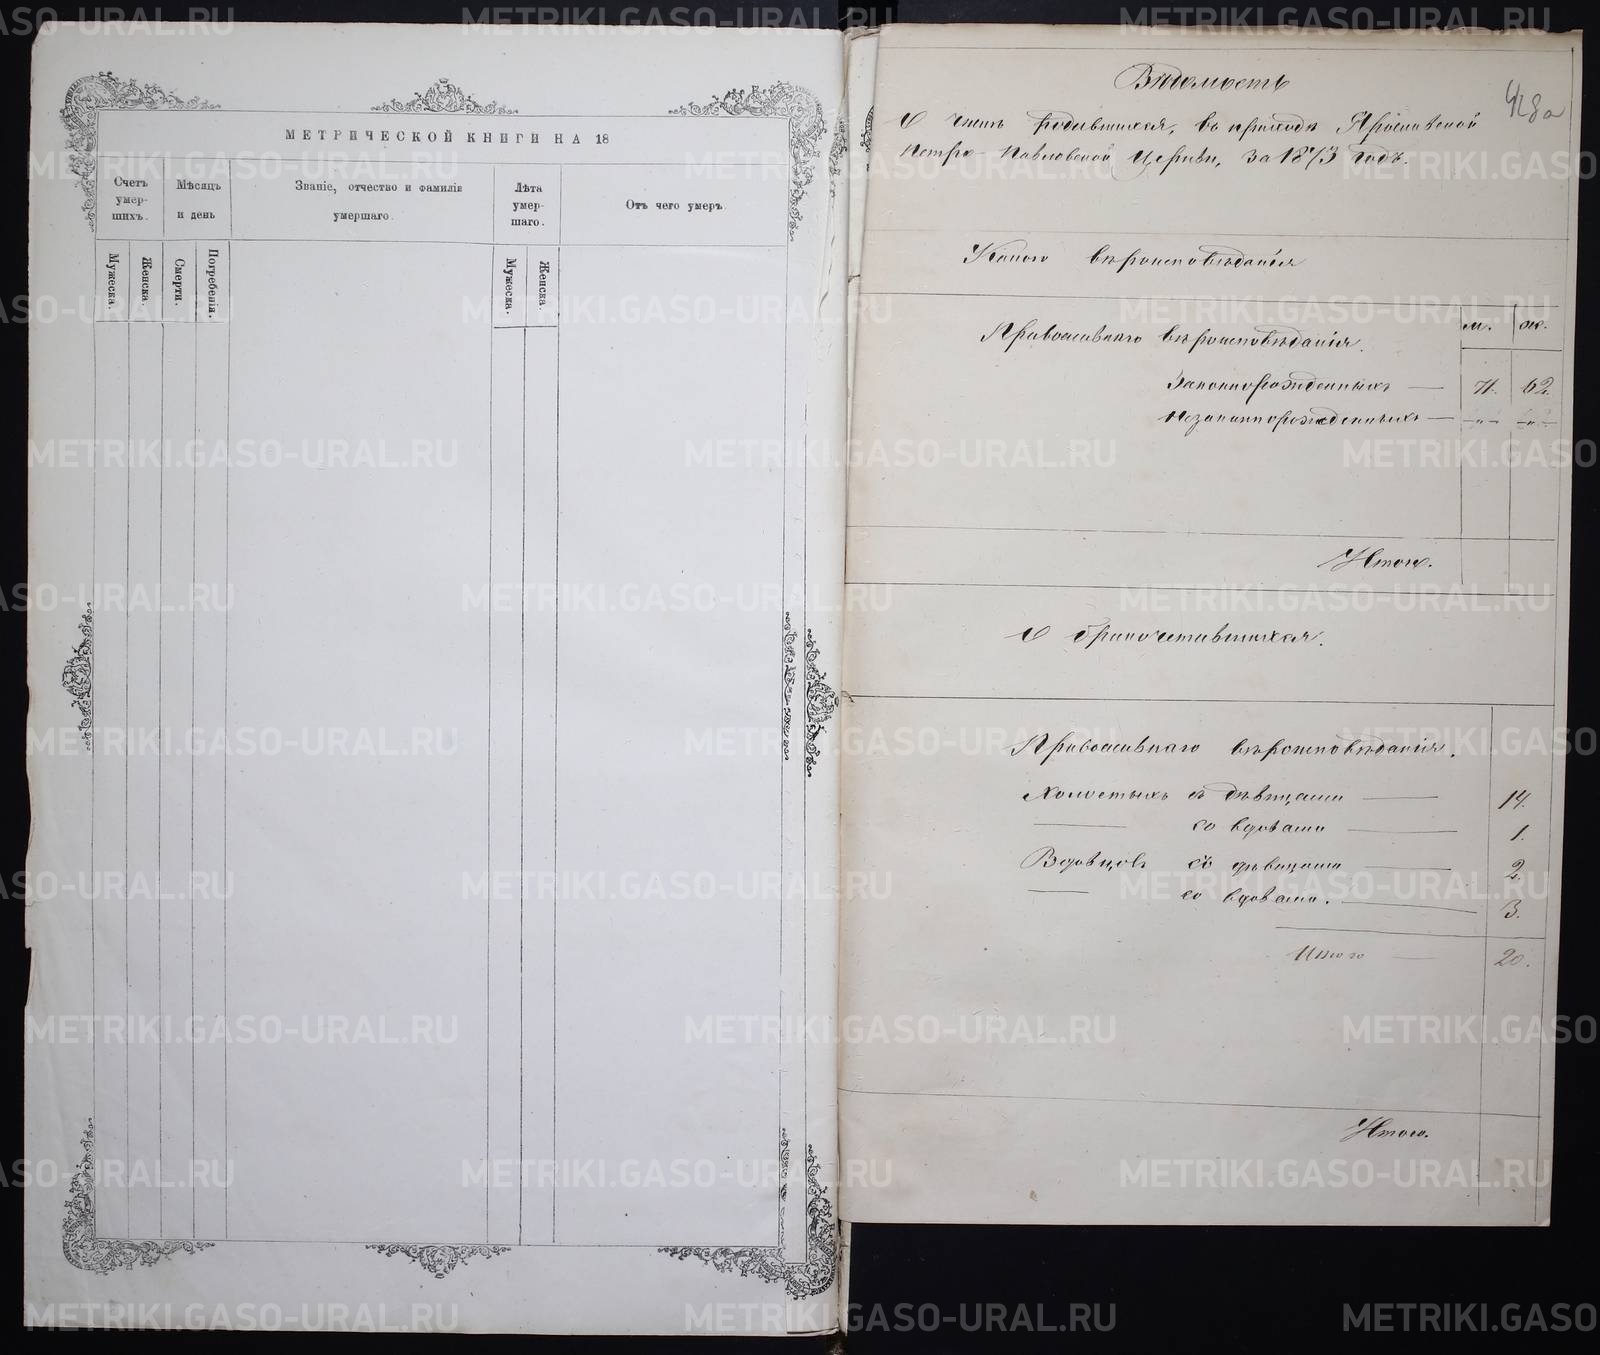 МЕТРИЧЕСКОЙ КНИГИ НА 18
Счетъ умер-шихъ.
Мѣсяцъ и день
Званіе, отчество и фамилія умершаго.
Лѣта умер-шаго.
Отъ чего умеръ.
Мужеска.
Женска.
Смерти.
Погребенія.
Мужеска.
Женска.
428а
Вѣдомость
О числѣ родившихся, въ приходѣ
Петро-Павловской Церкви, за 1873 годъ.
Какого вѣроисповѣданія
м. ж.
Православнаго вѣроисповѣданія.
Законнорожденныхъ — 71. 62.
Незаконнорожденныхъ — -"- -"-
Итого.
О бракочетавшихся.
Православнаго вѣроисповѣданія.
Холостыхъ съ дѣвицами — 14.
— со вдовами — 1.
Вдовцовъ съ дѣвицами — 2.
— со вдовами. — 3.
Итого — 20.
Итого.
METRIKI.GASO-URAL.RU